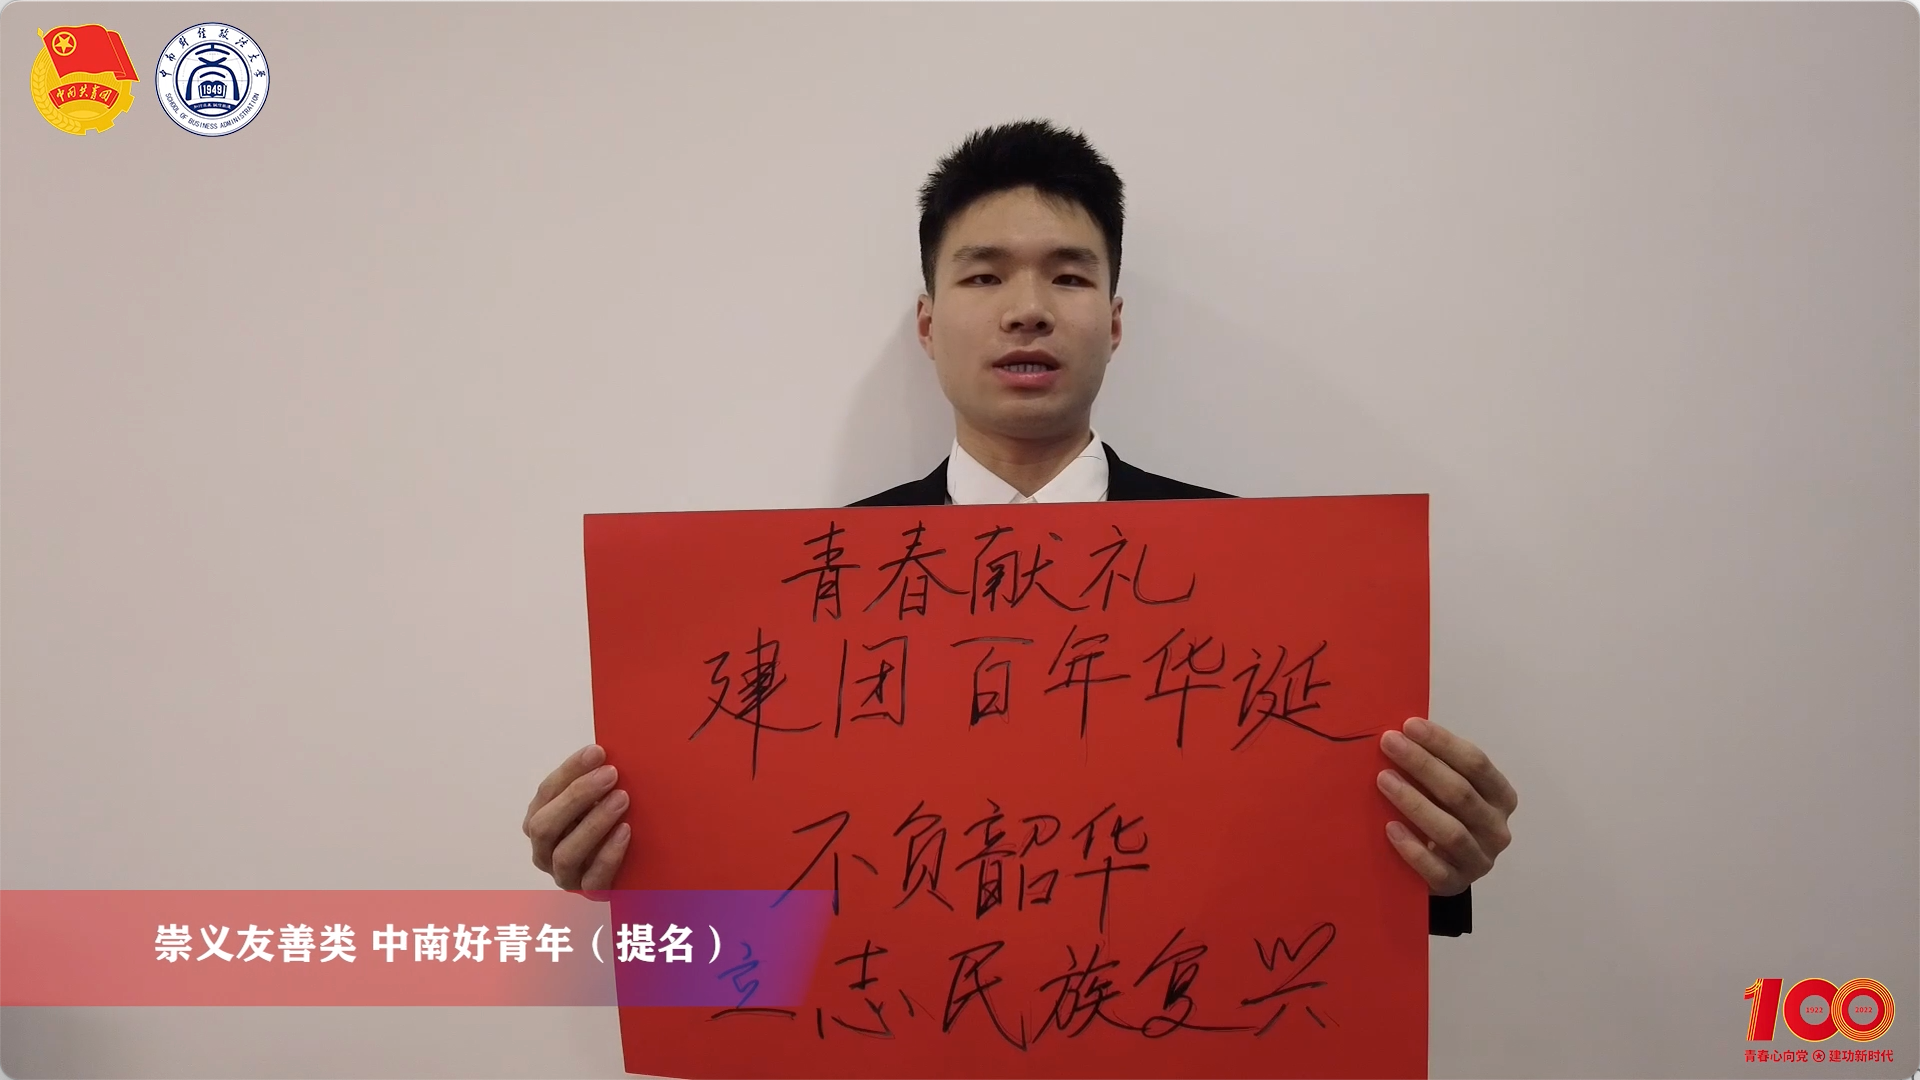 中国共青团
中南财经政法大学
1949
SCHOOL OF BUSINESS ADMINISTRATION
青春献礼
建团百年华诞
不负韶华
立志民族复兴
崇义友善类 中南好青年（提名）
100
1922 2022
青春心向党 建功新时代